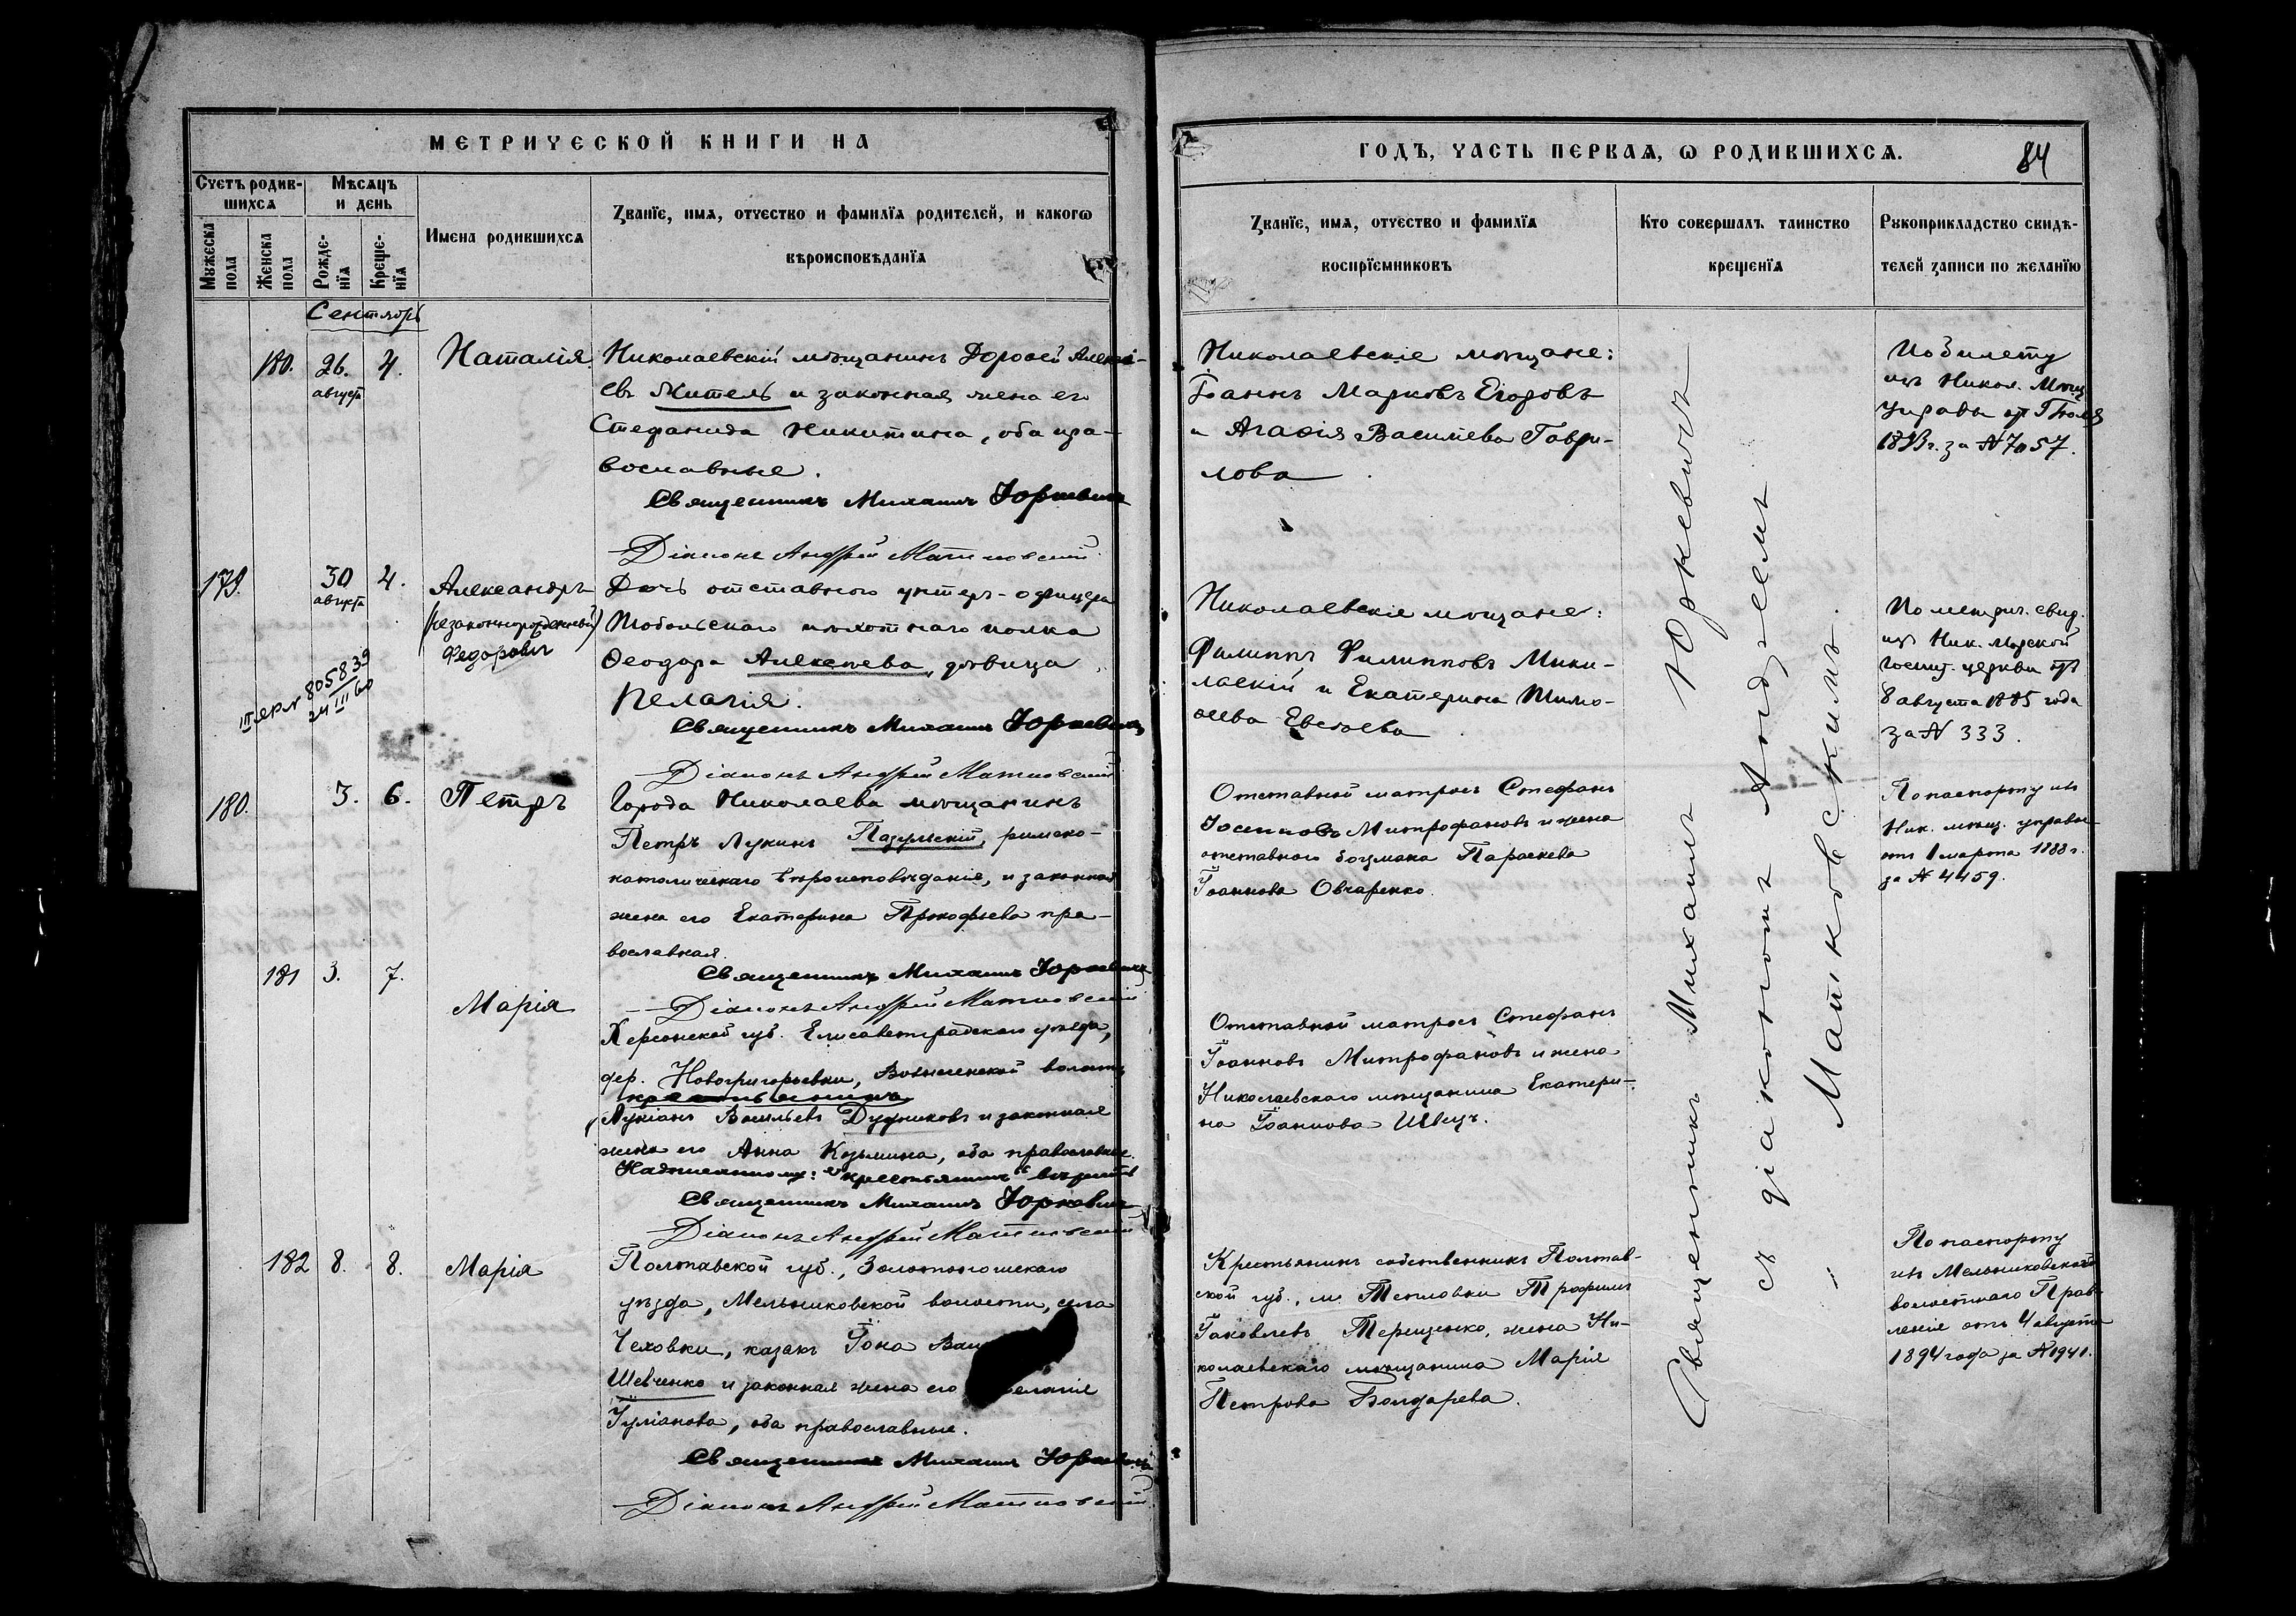 МЕТРИЧЕСКОЙ КНИГИ НА
ГОДЪ, ЧАСТЬ ПЕРВАѦ, Ѡ РОДИВШИХСѦ.
84
Счетъ родив-
шихсѧ
Мѣсѧцъ
и день
Мꙋжеска
пола
Женска
пола
Рожде-
нїѧ
Креще-
нїѧ
Имена родившихсѧ
Званїе, имѧ, отчество и фамилїѧ родителей, и какогѡ
вѣроисповѣданїѧ
Званїе, имѧ, отчество и фамилїѧ
воспрїемниковъ
Кто совершалъ таинство
крещенїѧ
Рꙋкоприкладство свидѣ-
телей записи по желанїю
Сентябрь
180. 26. 4.
августа
Наталія
Николаевскій мѣщанинъ Дороѳей Алексѣ-
евъ Житель и законная жена его
Стефанида Никитина, оба пра-
вославные.
Священникъ Михаилъ Юркевичъ
Діаконъ Андрей Матковскій
Николаевскіе мѣщане:
Іоаннъ Марковъ Егоровъ
и Агаѳія Васильева Гаври-
лова
По билету
изъ Никол. Мѣщ.
управы от
за № 7057.
179. 30 4.
августа
Александръ
(незаконнорожденный)
Федоровъ
III ЯРЛ 805839
24 III 60
Дочь отставного унтеръ-офицера
Тобольскаго пѣхотнаго полка
Ѳеодора Алексѣева, дѣвица
Пелагія.
Священникъ Михаилъ Юркевичъ
Діаконъ Андрей Матковскій
Николаевскіе мѣщане:
Филиппъ Филипповъ Мики-
ласкій и Екатерина Тимо-
ѳеева
По метрич. свид.
изъ Ник. морской
госпит. церкви отъ
8 августа 1885 года
за № 333.
180. 3. 6.
Петръ
Города Николаева мѣщанинъ
Петръ Лукинъ Пазульскій, римско-
католическаго вѣроисповѣданія, и законная
жена его Екатерина Прокофьева пра-
вославная.
Священникъ Михаилъ Юркевичъ
Діаконъ Андрей Матковскій
Отставной матросъ Стефанъ
Митрофановъ и жена
отставного боцмана Параскева
Іоаннова Овчаренко.
По паспорту изъ
Ник. мѣщ. управы
отъ 1 марта 1888 г.
за № 4459.
181 3. 7.
Марія
Херсонской губ. Елисаветградскаго уѣзда,
дер. Новогригорьевки, волости
крестьянинъ
Лукіанъ Васильевъ Дудниковъ и законная
жена его Анна Козьмина, оба православные.
Надписанному: "крестьянинъ" вѣрить
Священникъ Михаилъ Юркевичъ
Діаконъ Андрей Матковскій
Отставной матросъ Стефанъ
Іоанновъ Митрофановъ и жена
Николаевскаго мѣщанина Екатери-
на Іоаннова Швецъ.
182 8. 8.
Марія
Полтавской губ., Золотоношскаго
уѣзда, Мельниковской волости, села
Чеховки, казакъ Іона
Шевченко и законная жена его
Іуліанова, оба православные.
Священникъ Михаилъ Юркевичъ
Діаконъ Андрей Матковскій
Крестьянинъ собственникъ Полтав-
ской губ., м. Тепловки Трофимъ
Іаковлевъ Терещенко, жена Ни-
колаевскаго мѣщанина Марія
Петрова Бондарева.
По паспорту
изъ Мельниковскаго
волостнаго Прав-
ленія отъ 4 августа
1894 года за № 1941.
Священникъ Михаилъ Юркевичъ
съ діакономъ Андреемъ
Матковскимъ.